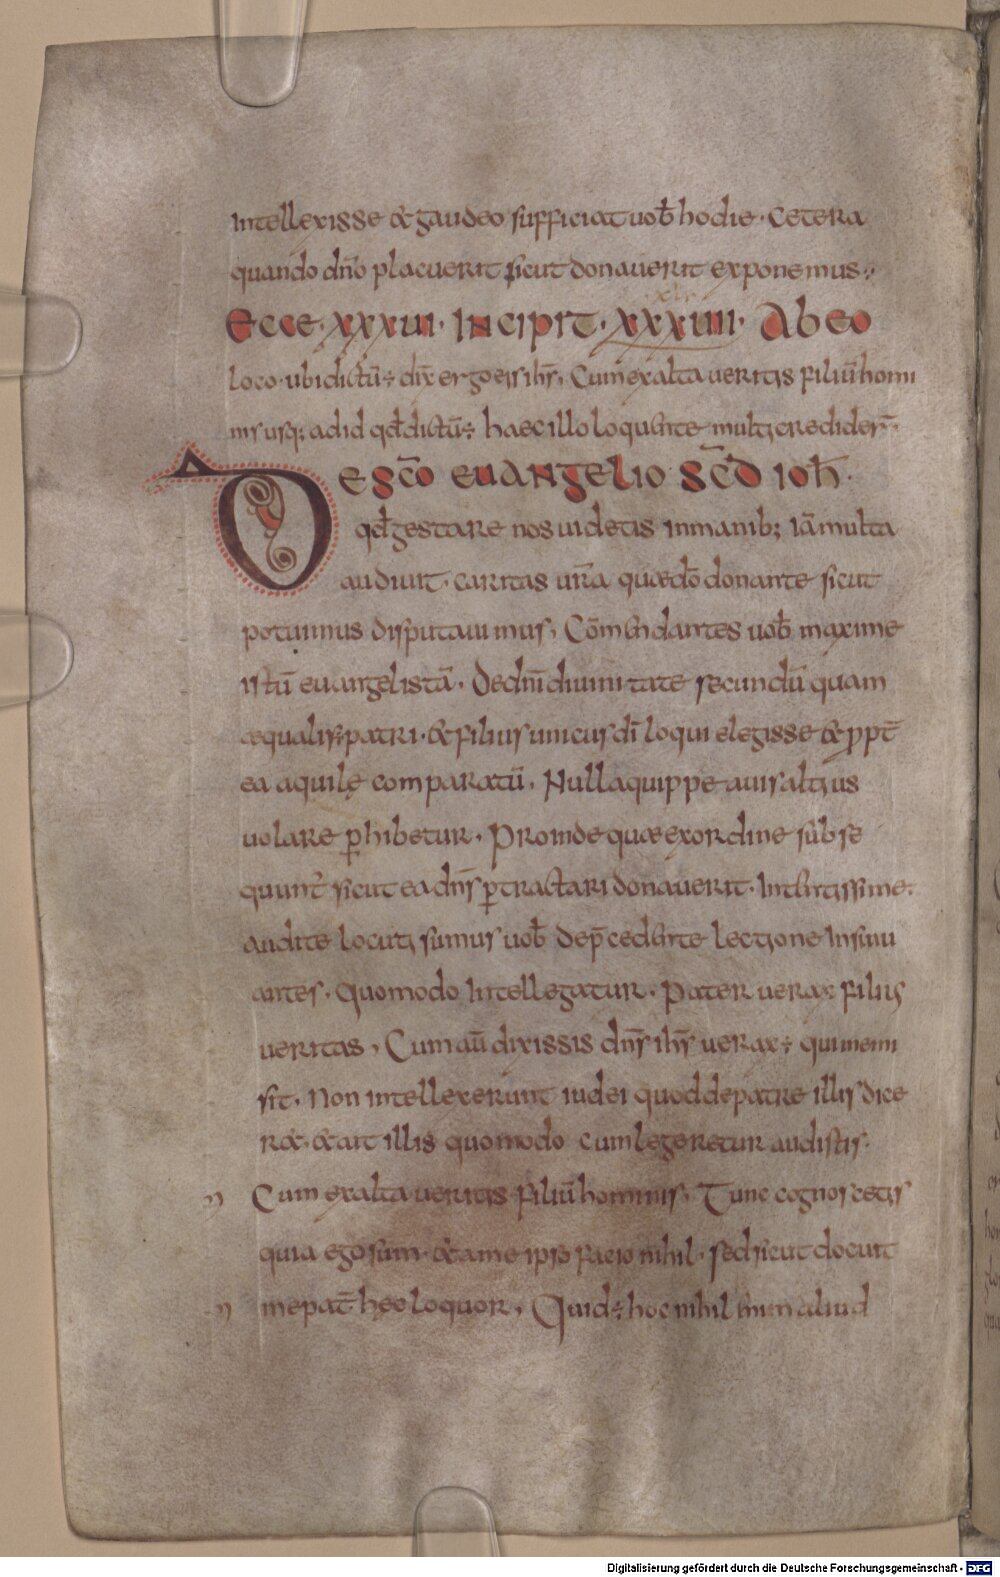 intellexisse & gaudeo sufficiat uob̄ hodie · Cetera
quando dn̄o placuerit sicut donauerit exponemus ·,·
Ecce · xxxuı · Incipit · xxxuııı · Ab eo
loco · ubi dictū ÷ dix̄ ergo eis ih̄s, Cum exaltaueritis filiū homi
nis usq; ad id qd̄ dictū ÷ haec illo loquente multi credider̄ ·
De sc̄o euangelio sc̄d ioh̄ ·
qd̄ gestare nos uidetis in manib; iā multa
audiuit · caritas ur̄a quae dō donante sicut
potuimus disputauimus, Cōmendantes uob̄ maxime
istū euangelistā · De dn̄i diuinitate secundū quam
aequalis ÷ patri · & filius unicus dī loqui elegisse & ppt̄
ea aquilę comparatū, Nulla quippe auis altius
uolare p̱hibetur · Proinde quae ex ordine sūb se
quunt̄ sicut ea dn̄s p̱tractari donauerit · Intentissime ·
audite locuti sumus uob̄ de p̄cedente lectione Insinu
antes · Quomodo Intellegatur · Pater uerax filius
ueritas, Cum aū dixissis dn̄s ih̄s uerax ÷ qui me mi
sit · Non intellexerunt iudei quod de patre illis dice
r& · & ait illis quomodo cum legeretur audistis ·
Cum exaltaueritis filiū hominis, Tunc cognoscetis
quia ego sum · & a me ipso facio nihil · sed sicut docuit
me pat̄ hec loquor, Quid ÷ hoc nihil enim aliud
Digitalisierung gefördert durch die Deutsche Forschungsgemeinschaft - DFG